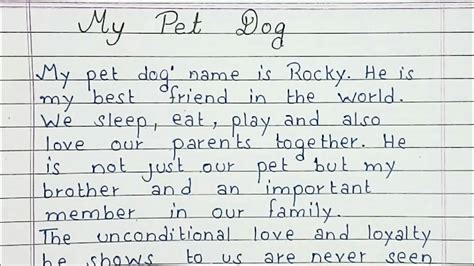 My Pet Dog
My pet dog' name is Rocky. He is
my best friend in the world.
We sleep, eat, play and also
love our parents together. He
is not just our pet but my
brother and an important
member in our family.
The unconditional love and loyalty
he shows to us are never seen